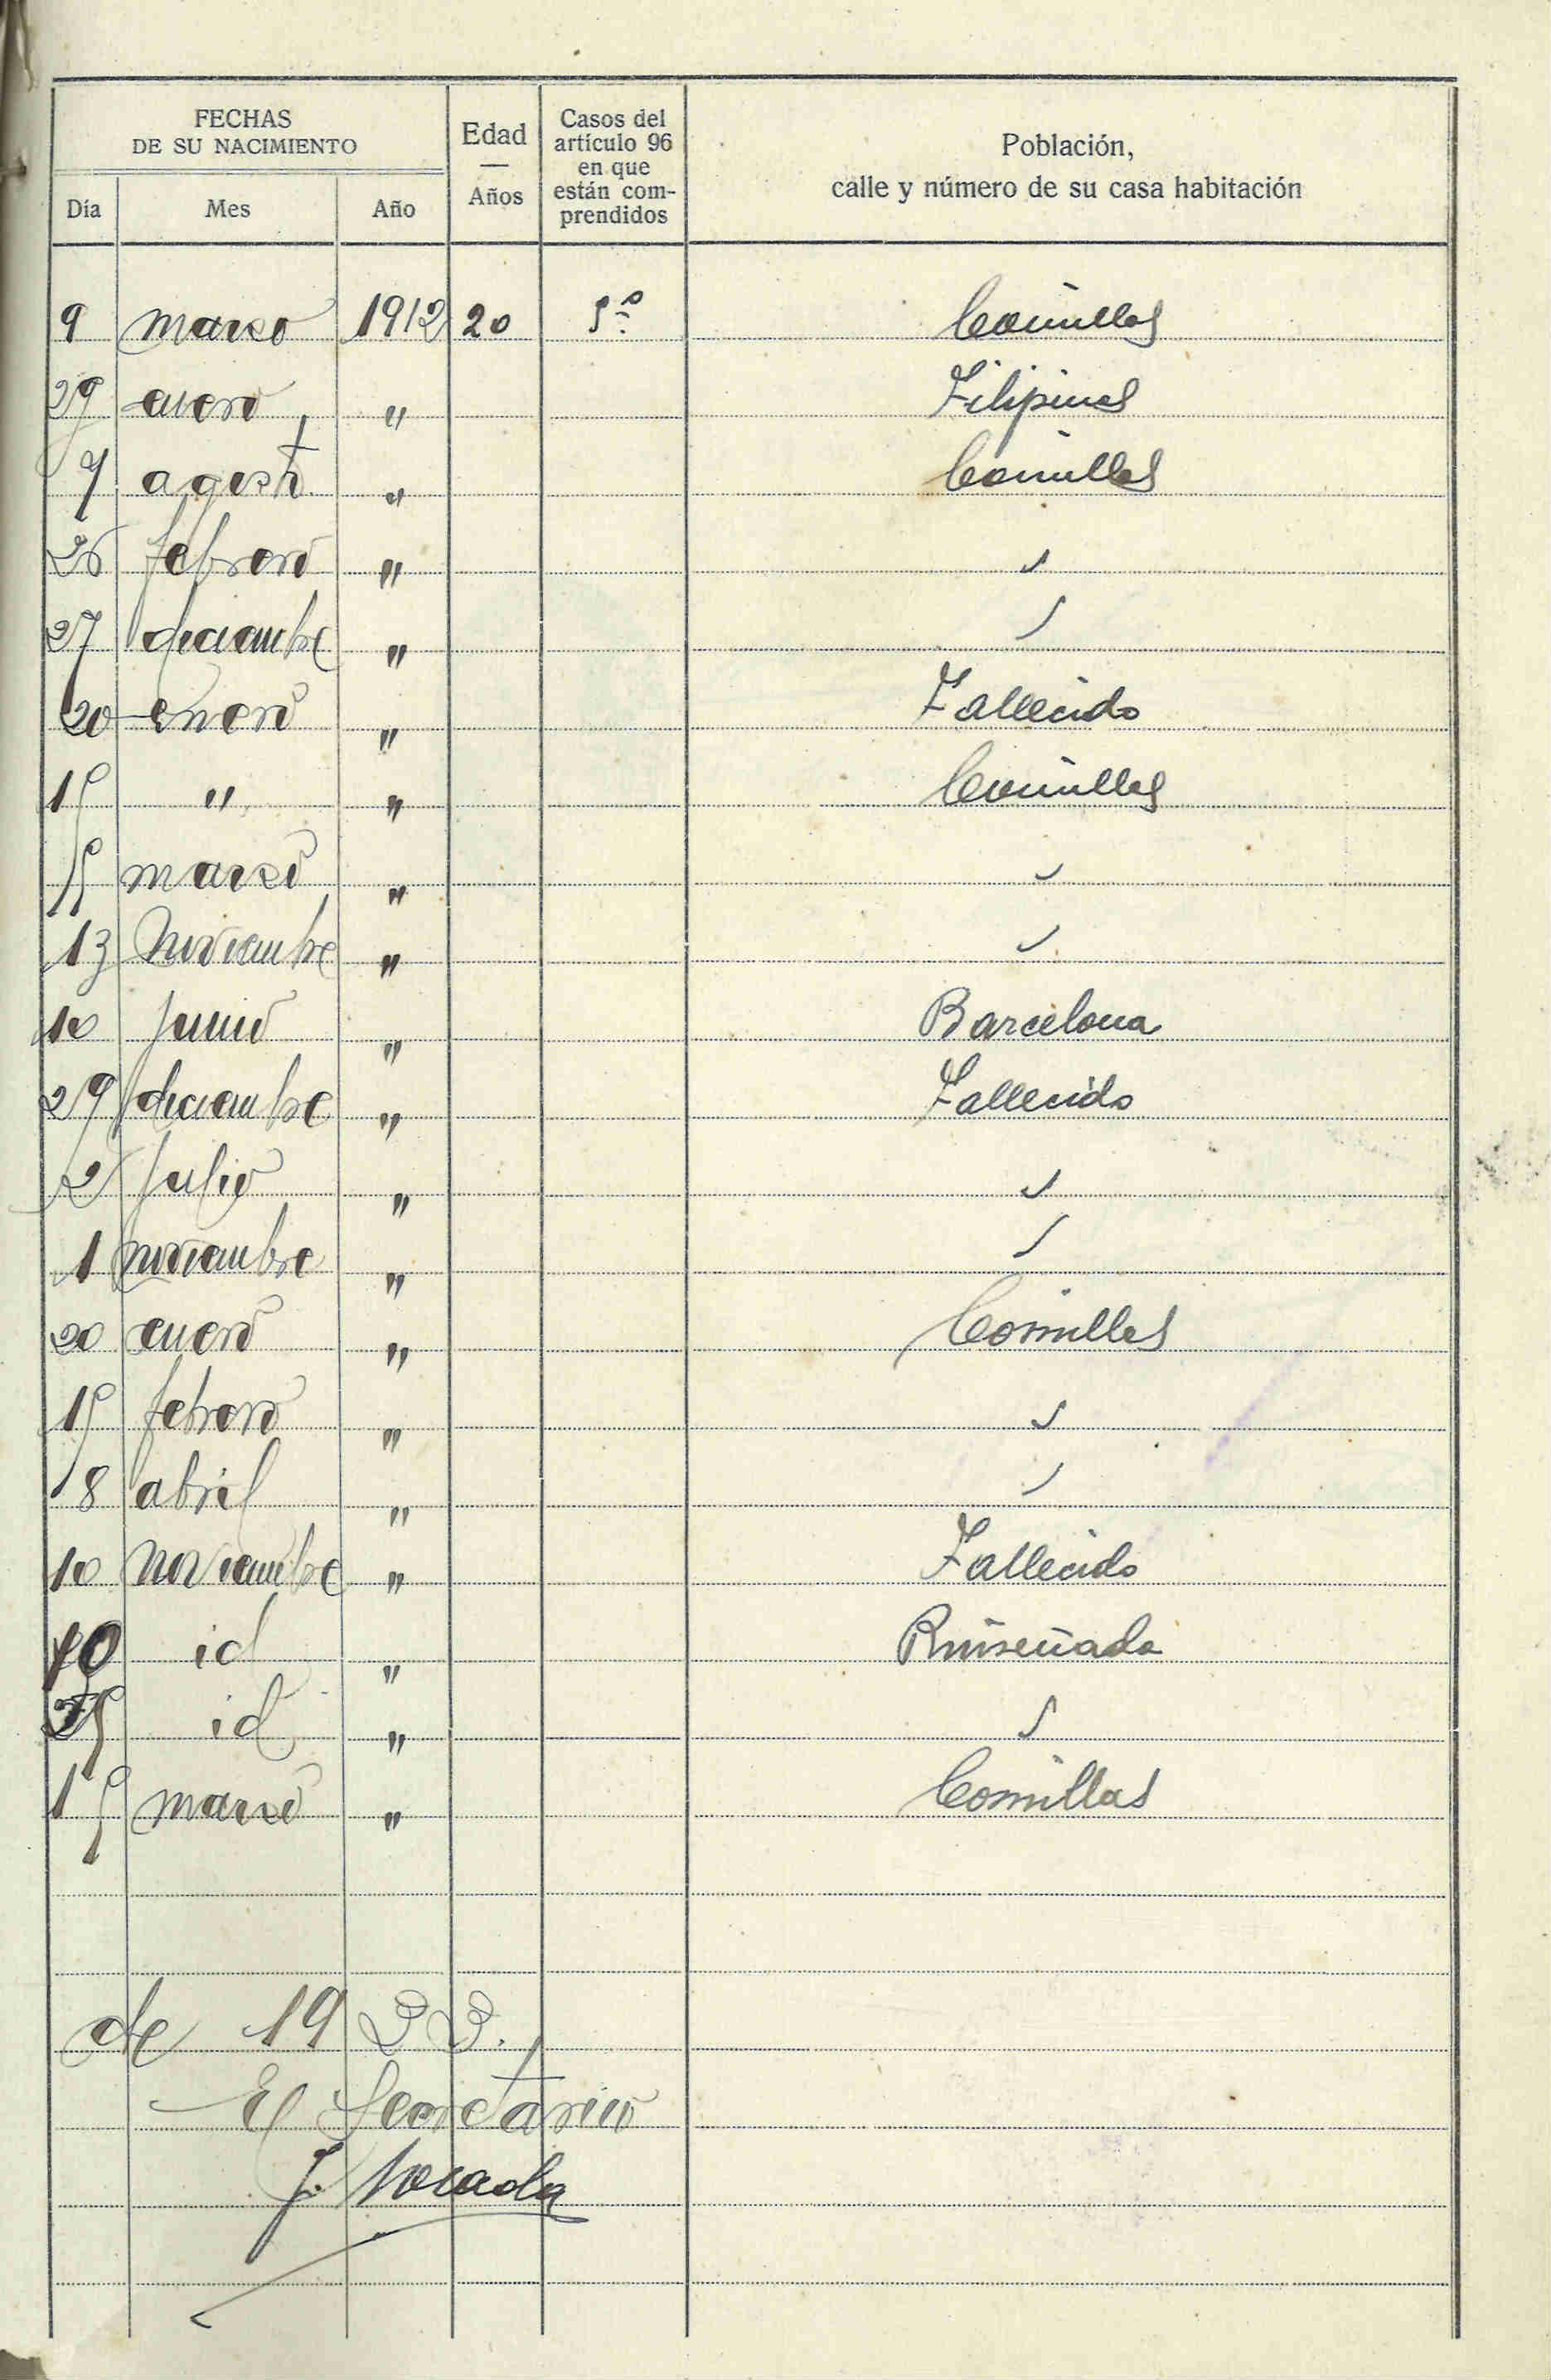 FECHAS
DE SU NACIMIENTO
Día Mes Año
Edad
—
Años
Casos del
artículo 96
en que
están com-
prendidos
Población,
calle y número de su casa habitación
9 marzo 1912 20 5º Comillas
29 enero " Filipinas
7 agosto " Comillas
26 febrero " "
27 diciembre " "
20 enero " Fallecido
15 " " Comillas
15 marzo " "
13 Noviembre " "
10 junio " Barcelona
29 diciembre " Fallecido
2 julio " "
1 noviembre " "
20 enero " Comillas
15 febrero " "
18 abril " "
10 noviembre " Fallecido
id " Ruiseñada
id " "
15 marzo " Comillas
de 1933.
El Secretario